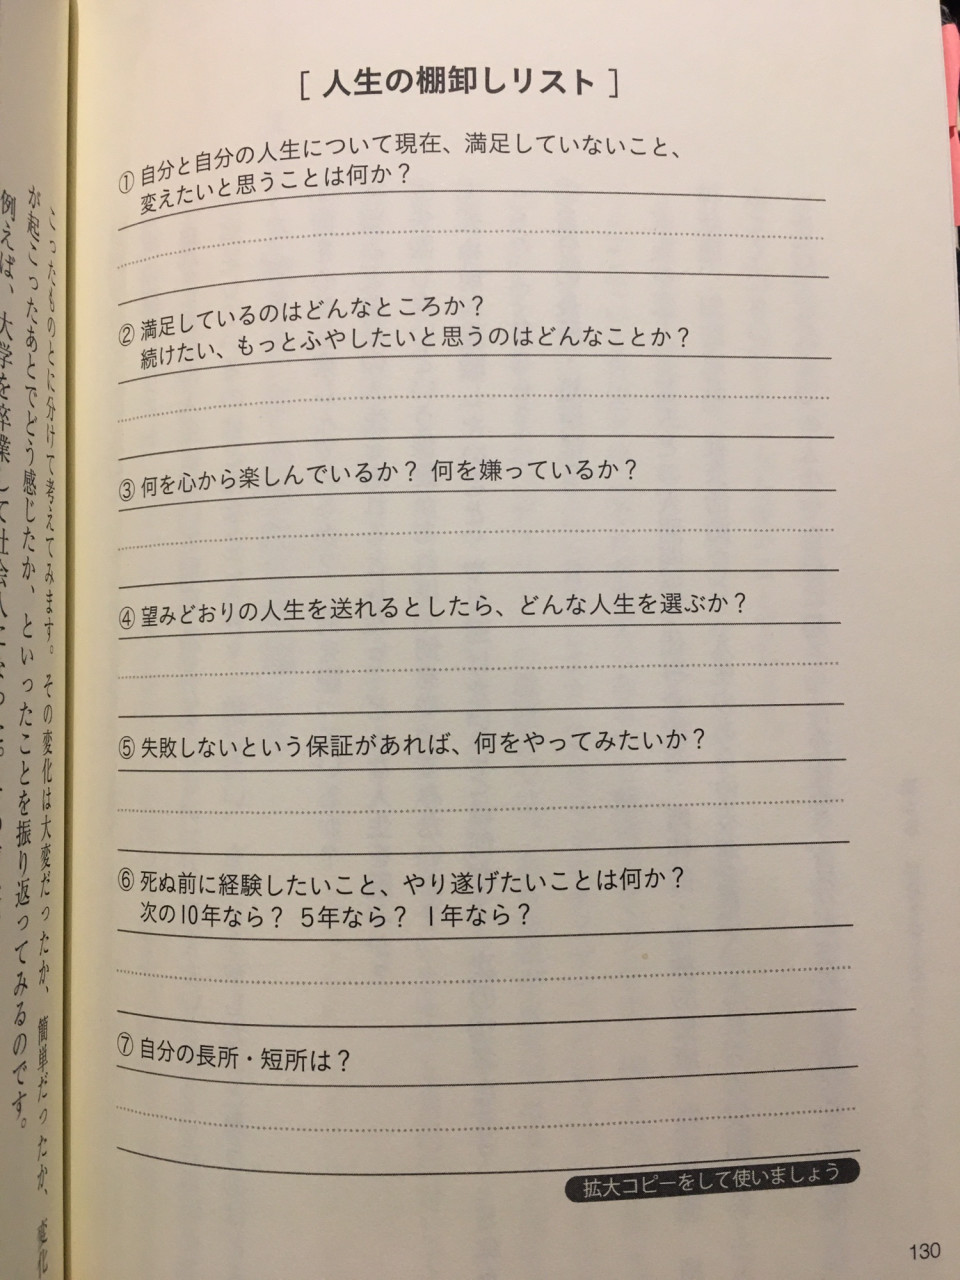 [ 人生の棚卸しリスト ]
① 自分と自分の人生について現在、満足していないこと、
変えたいと思うことは何か？
② 満足しているのはどんなところか？
続けたい、もっとふやしたいと思うのはどんなことか？
③ 何を心から楽しんでいるか？ 何を嫌っているか？
④ 望みどおりの人生を送れるとしたら、どんな人生を選ぶか？
⑤ 失敗しないという保証があれば、何をやってみたいか？
⑥ 死ぬ前に経験したいこと、やり遂げたいことは何か？
次の10年なら？ 5年なら？ 1年なら？
⑦ 自分の長所・短所は？
拡大コピーをして使いましょう
130
こったものとに分けて考えてみます。その変化は大変だったか、簡単だったか、変化
が起こったあとでどう感じたか、といったことを振り返ってみるのです。
例えば、大学を卒業して社会人になった